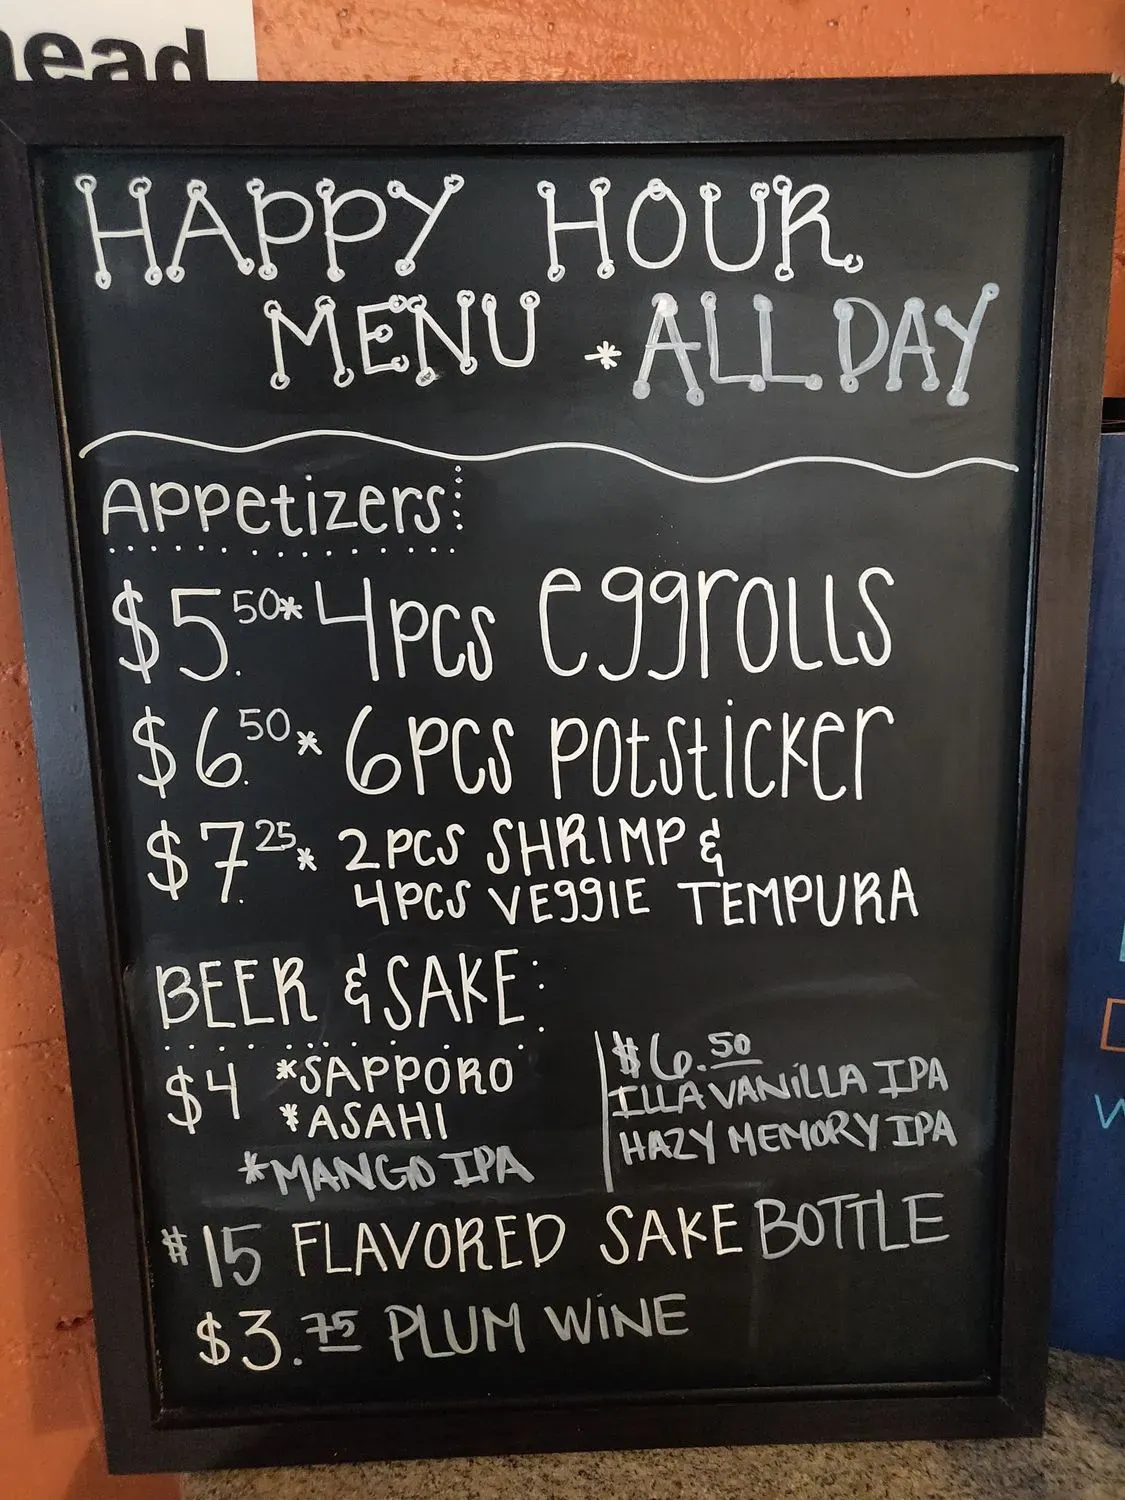 head
HAPPY HOUR
MENU *ALL DAY
Appetizers:
$5.50* 4pcs eggrolls
$6.50* 6pcs potsticker
$7.25* 2PCS SHRIMP &
4PCS VEGGIE TEMPURA
BEER & SAKE:
$4 *SAPPORO
*ASAHI
*MANGO IPA
$6.50
ILLA VANILLA IPA
HAZY MEMORY IPA
$15 FLAVORED SAKE BOTTLE
$3.75 PLUM WINE